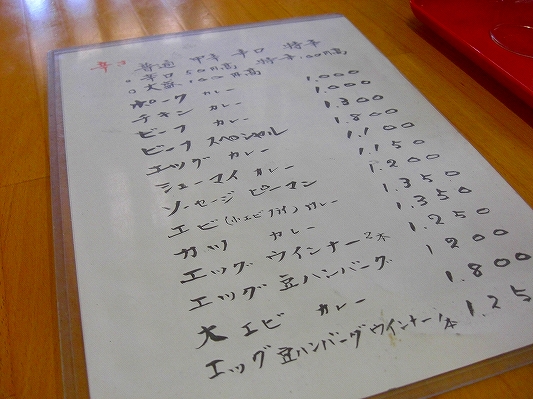 辛さ 普通 中辛 辛口 特辛
○ 辛口 50円高 特辛 100円高
○ 大盛 100円高
ポーク カレー 1.000
チキン カレー 1.000
ビーフ カレー 1.300
ビーフ スペシャル 1.800
エッグ カレー 1.100
シューマイ カレー 1.150
ソーセージ ピーマン 1.200
エビ(小エビフライ)カレー 1.350
カツ カレー 1.350
エッグ ウインナー2本 1.250
エッグ 豆ハンバーグ 1200
大エビ カレー 1.800
エッグ 豆ハンバーグウインナー1本 1.25